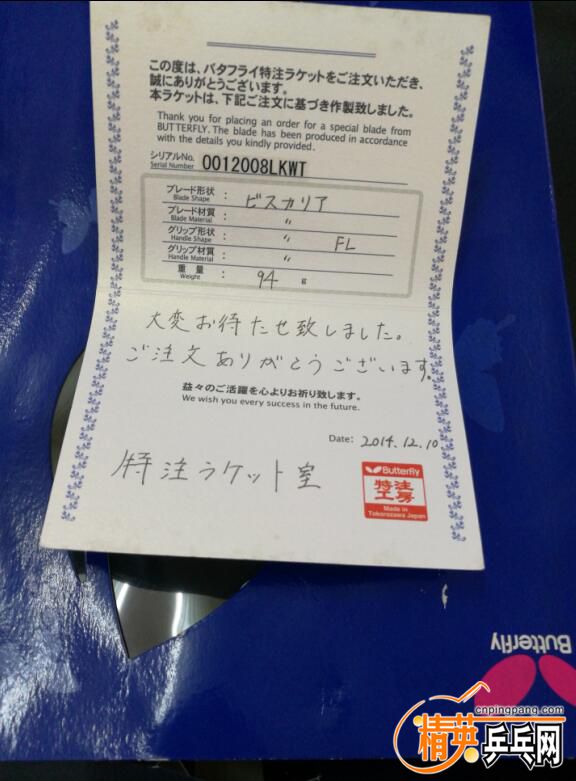 この度は、バタフライ特注ラケットをご注文いただき、
誠にありがとうございます。
本ラケットは、下記ご注文に基づき作製致しました。
Thank you for placing an order for a special blade from
BUTTERFLY. The blade has been produced in accordance
with the details you kindly provided.
シリアルNo.
Serial Number
0012008LKWT
ブレード形状 : ビスカリア
Blade Shape
ブレード材質 : 〃
Blade Material
グリップ形状 : 〃 FL
Handle Shape
グリップ材質 : 〃
Handle Material
重量 : 94 g
Weight
大変お待たせ致しました。
ご注文ありがとうございます。
益々のご活躍を心よりお祈り致します。
We wish you every success in the future.
Date: 2014.12.10.
特注ラケット室
Butterfly
特注
工房
Made in
Tokorozawa Japan
Butterfly
cnpingpang.com
精英乒乓网